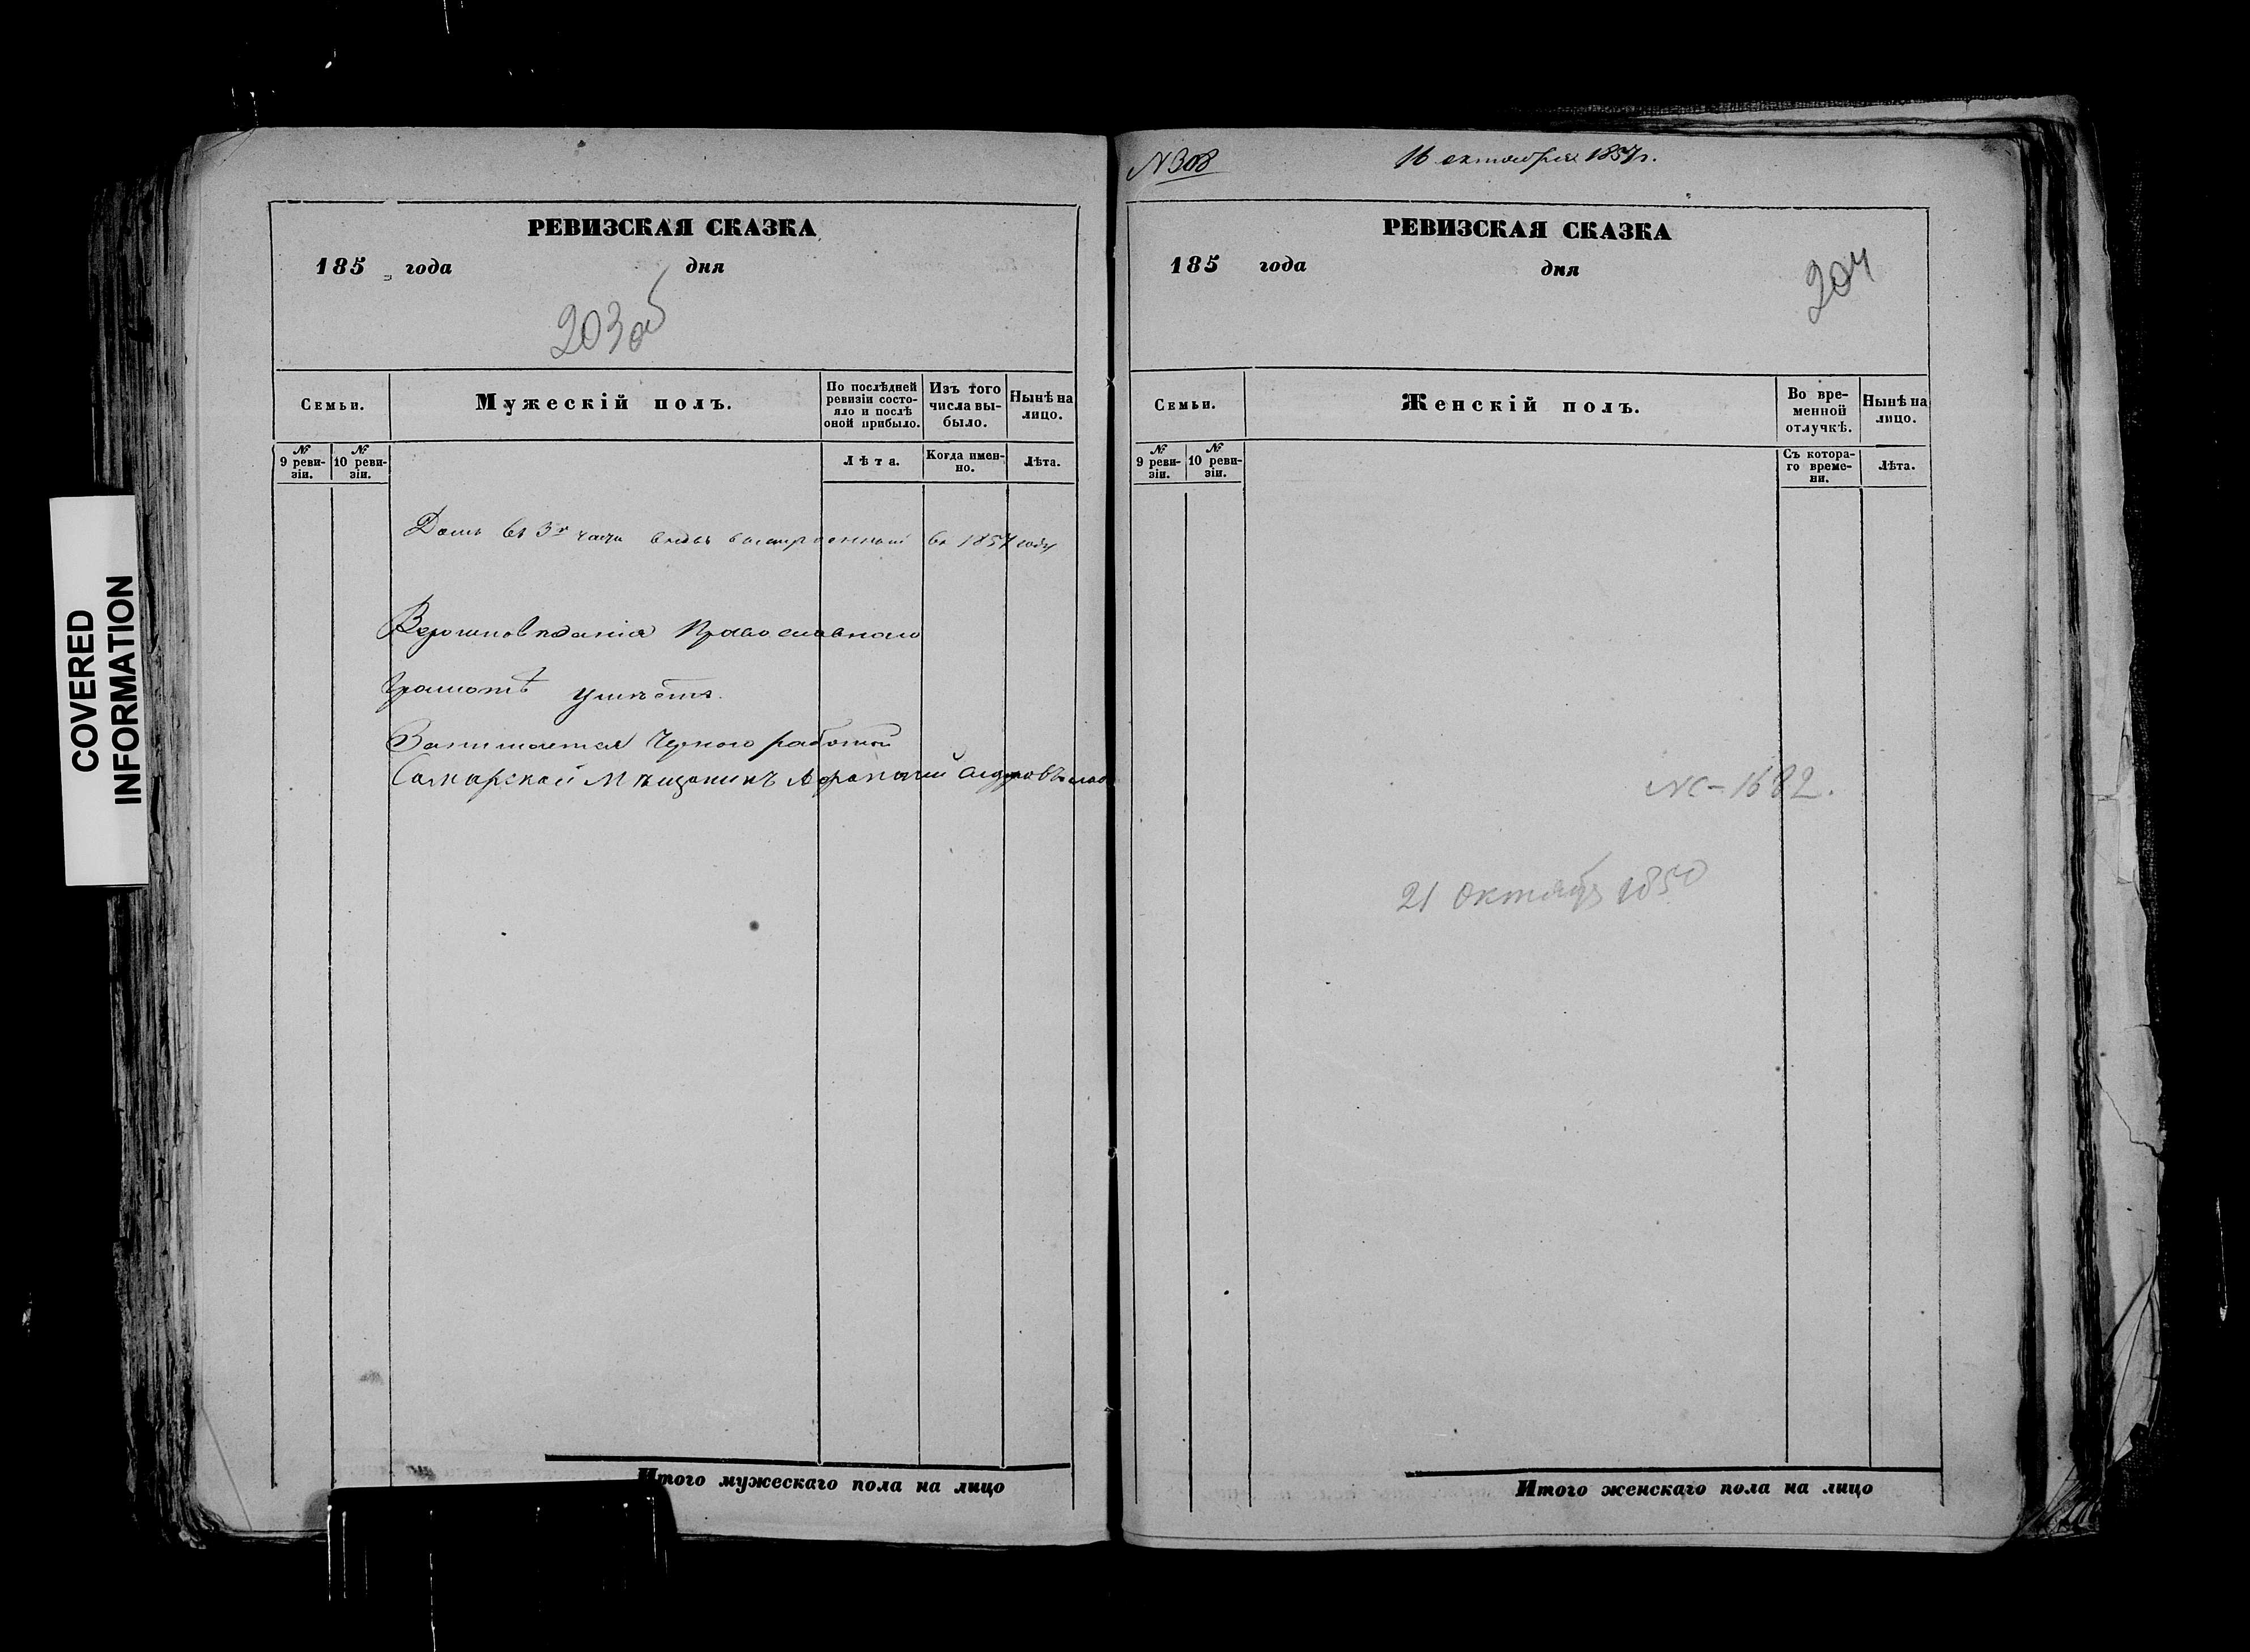 COVERED
INFORMATION
РЕВИЗСКАЯ СКАЗКА
185 года дня
203об
Семьи.
Мужескій полъ.
По послѣдней
ревизіи состо-
яло и послѣ
оной прибыло.
Изъ того
числа вы-
было.
Нынѣ на
лицо.
№
9 реви-
зіи.
№
10 реви-
зіи.
Лѣта.
Когда имен-
но.
Лѣта.
Домъ въ 3й части вновь выстроенный въ 1857 году
Вероисповѣданія Православнаго
Грамотѣ умѣетъ.
Занимается Черною работой
Самарской Мѣщанинъ Афанасий
Итого мужескаго пола на лицо
N 308
16 октября 1857 г.
РЕВИЗСКАЯ СКАЗКА
185 года дня
204
Семьи.
Женскій полъ.
Во вре-
менной
отлучкѣ.
Нынѣ на
лицо.
№
9 реви-
зіи.
№
10 реви-
зіи.
Съ котора-
го време-
ни.
Лѣта.
1682.
21 Октября 1850
Итого женскаго пола на лицо